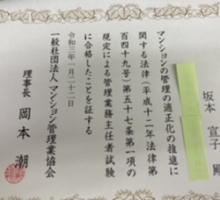 坂本 宣子 殿
マンションの管理の適正化の推進に
関する法律(平成十二年法律第
百四十九号)第五十七条第一項の
規定による管理業務主任者試験
に合格したことを証する
令和三年一月二十二日
一般社団法人マンション管理業協会
理事長 岡本 潮